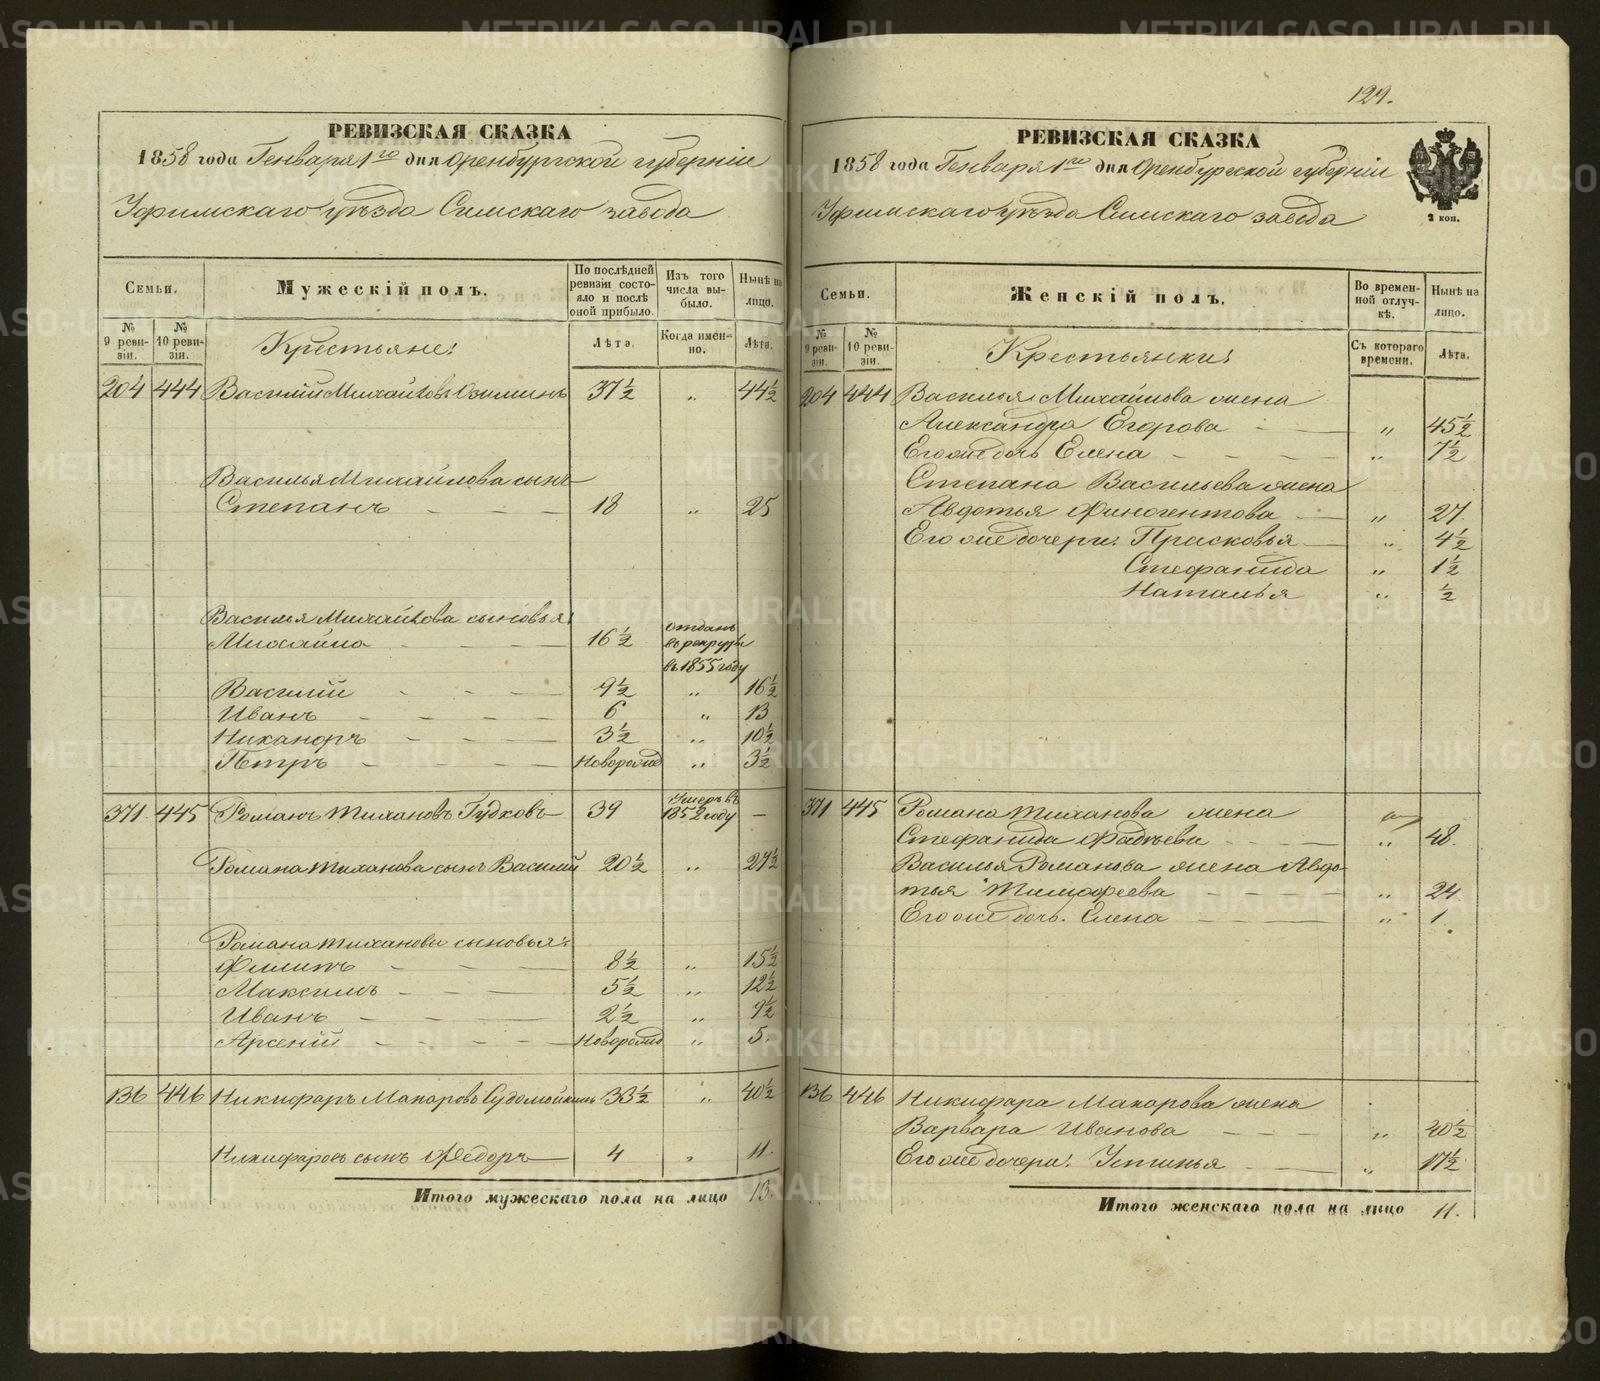 129.
РЕВИЗСКАЯ СКАЗКА
1858 года Генваря 1го дня Оренбургской губерніи
Уфимскаго уѣзда Симскаго завода
Семьи.
Мужескій полъ.
По послѣдней ревизіи состояло и послѣ оной прибыло.
Изъ того числа выбыло.
Нынѣ на лицо.
№ 9 ревизіи.
№ 10 ревизіи.
Крестьяне:
Лѣта.
Когда именно.
Лѣта.
204 444 Василій Михайловъ 37½ „ 44½
Василья Михайлова сынъ
Степанъ 18 „ 25
Василья Михайлова сыновья:
Михайло 16½ отданъ въ рекруты въ 1855 году
Василій 9½ „ 16½
Иванъ 6 „ 13
Никаноръ 3½ „ 10½
Петръ новорожд „ 3½
371 445 Романъ Тихановъ Гудковъ 39 Умеръ въ 1852 году —
Романа Тиханова сынъ Василій 20½ „ 27½
Романа Тиханова сыновья:
Филипъ 8½ „ 15½
Максимъ 5½ „ 12½
Иванъ 2½ „ 9½
Арсеній новорожд „ 5.
136 446 Никифаръ Макаровъ Судомойкинъ 33½ „ 40½
Никифаровъ сынъ Федоръ 4 „ 11.
Итого мужескаго пола на лицо 13.
РЕВИЗСКАЯ СКАЗКА
1858 года Генваря 1го дня Оренбургской губерніи
Уфимскаго уѣзда Симскаго завода
2 коп.
Семьи.
Женскій полъ.
Во временной отлучкѣ.
Нынѣ на лицо.
№ 9 ревизіи.
№ 10 ревизіи.
Крестьянки:
Съ котораго времени.
Лѣта.
204 444 Василья Михайлова жена
Александра Егорова „ 45½
Его же дочь Елена „ 7½
Степана Васильева жена
Авдотья Финогентова „ 27.
Его же дочери: Прасковья „ 4½
Стефанида „ 1½
Наталья „ ½
371 445 Романа Тиханова жена
Стефанида Фадѣева „ 48.
Василья Романова жена Авдо-
тья Тимофеева „ 24.
Его же дочь Елена „ 1.
136 446 Никифара Макарова жена
Варвара Иванова „ 40½
Его же дочери: Устинья „ 17½
Итого женскаго пола на лицо 11.
METRIKI.GASO-URAL.RU